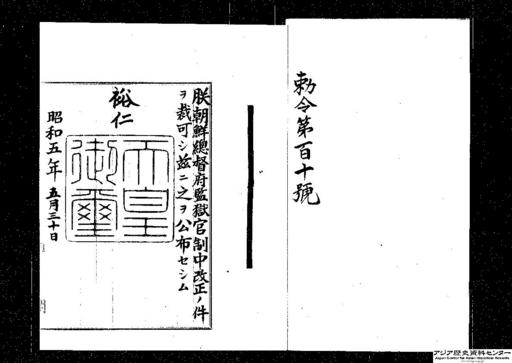 勅令第百十號
朕朝鮮總督府監獄官制中改正ノ件
ヲ裁可シ茲ニ之ヲ公布セシム
裕仁
天皇
御璽
昭和五年五月三十日
アジア歴史資料センター
Japan Center for Asian Historical Records